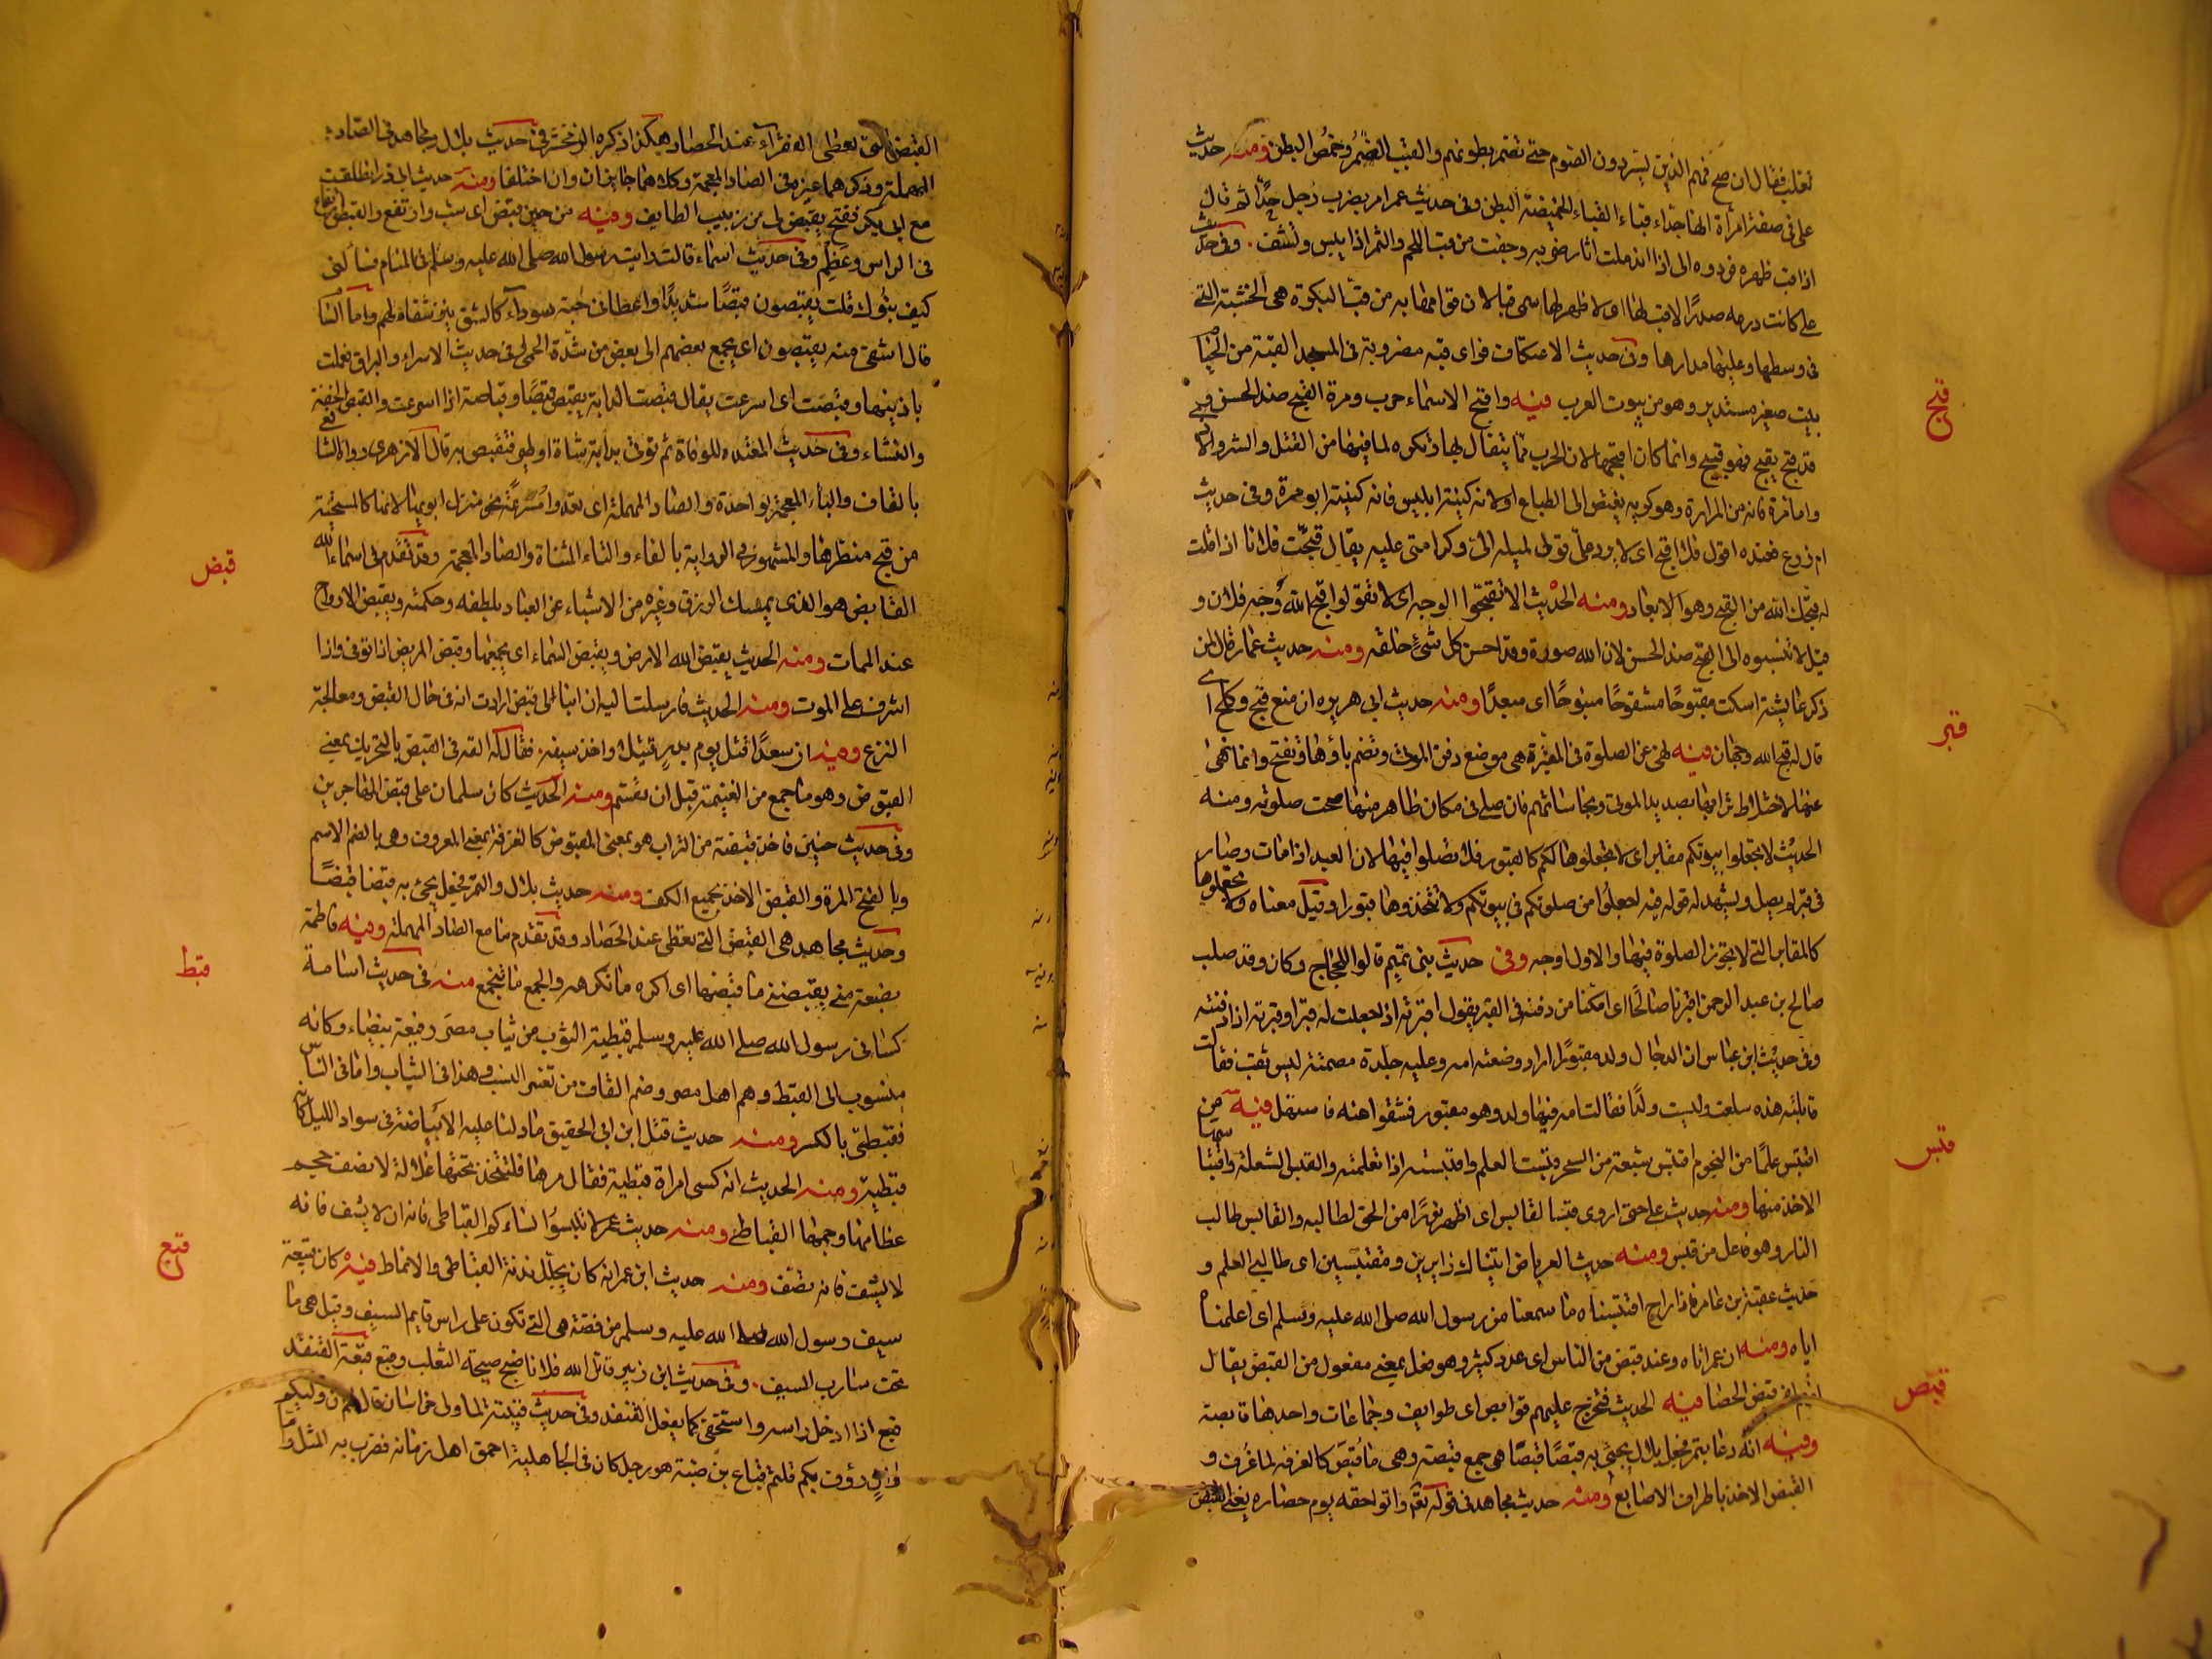 ثعلب فقال ان صح فهم الذين يسردون الصوم حتى تضمر بطونهم والقبب الضمر وخمص البطن ومنه حديث
على فى صفة امرأة انها جداء قباء القباء الخميصة البطن وفى حديث عمر امر بضرب رجل حدا ثم قال
اذا قب ظهره فردوه الى اذا اندملت اثار ضربه وجفت من قب اللحم والتمر اذا يبس ونشف وفى حديث
على كانت درعه صدرا لا قب لها اى لا ظهر لها سمى قبا لان قوامها به من قب البكرة هى الخشبة التى
فى وسطها وعليها مدارها وفى حديث الاعتكاف فراى قبة مضروبة فى المسجد القبة من الخيام
بيت صغير مستدير وهو من بيوت العرب فيه واقبح الاسماء حرب ومرة القبح ضد الحسن
قبح
قد قبح يقبح فهو قبيح وانما كان اقبحها لان الحرب مما يتفال بها وتكره لما فيها من القتل والشر والاذى
واما مرة فانه من المرارة وهو كريه بغيض الى الطباع او لانه كنية ابليس فانه كنيته ابو مرة وفى حديث
ام زرع فعنده اقول فلا اقبح اى لا يرد على قولى لميله الى وكرامتى عليه يقال قبحت فلانا اذا قلت
له قبحك الله من القبح وهو الابعاد ومنه الحديث لا تقبحوا الوجه اى لا تقولوا قبح الله وجه فلان و
قيل لا تنسبوه الى القبح ضد الحسن لان الله صوره وقد احسن كل شئ خلقه ومنه حديث عمار قال لمن
ذكر عائشة اسكت مقبوحا مشقوحا منبوحا اى مبعدا ومنه حديث ابى هريرة ان منع قبح وكلح اى
قال له قبح الله وجهك فيه نهى عن الصلوة فى المقبرة هى موضع دفن الموتى وتضم باؤها وتفتح وانما نهى
قبر
عنها لاختلاط ترابها بصديد الموتى ونجاساتهم فان صلى فى مكان طاهر منها صحت صلوته ومنه
الحديث لا تجعلوا بيوتكم مقابر اى لا تجعلوها لكم كالقبور فلا تصلوا فيها لان العبد اذا مات وصار
فى قبره لم يصل ويشهد له قوله فيه اجعلوا من صلوتكم فى بيوتكم ولا تتخذوها قبورا وقيل معناه ولا تجعلوها
كالمقابر التى لا يجوز الصلوة فيها والاول اوجه وفى حديث بنى تميم قالوا للحجاج وكان وقد صلب
صالح بن عبد الرحمن اقبرنا صالحا اى امكنا من دفنه فى القبر يقول اقبرته اذا جعلت له قبرا وقبرته اذا دفنته
وفى حديث ابن عباس ان الدجال ولد مقبورا اراد وضعته امه وعليه جلدة مصمتة ليس ثقب فقالت
قابلته هذه سلعة وليست ولدا فقالت امه فيها ولد وهو مقبور فشقوا عنه فاستهل فيه من
اقتبس علما من النجوم اقتبس شعبة من السحر قبست العلم واقتبسته اذا تعلمته والقبس الشعلة واقتباسها
قبس
الاخذ منها ومنه حديث على حتى اورى قبسا لقابس اى اظهر نورا من الحق لطالبه والقابس طالب
النار وهو فاعل من قبس ومنه حديث العرباض اتيناك زايرين ومقتبسين اى طالبى العلم و
حديث عقبة بن عامر فاذا راح اقتبسناه ما سمعنا من رسول الله صلى الله عليه وسلم اى اعلمناه
اياه ومنه ان عمر اتاه وعنده قبص من الناس اى عدد كثير وهو فعل بمعنى مفعول من القبص يقال
انهم لفى قبص الحصا فيه الحديث فتخرج عليهم قوابص اى طوايف وجماعات واحدها قابصة
قبص
وفيه انه دعا بتمر فجعل بلال يجئ به قبصا قبصا هى جمع قبصة وهى ما قبص كالغرفة لما غرف و
القبص الاخذ باطراف الاصابع ومنه حديث مجاهد فى قوله تعالى واتوا حقه يوم حصاده يعنى القبص
القبص التى يعطى الفقراء عند الحصاد هكذا ذكره الزمخشرى فى حديث بلال ومجاهد فى الصاد
المهملة وذكرهما غيره فى الضاد المعجمة وكلاهما جايزان وان اختلفا ومنه حديث ابى ذر انطلقت
مع ابى بكر ففتح يقبض لى من زبيب الطايف وفيه من حين قبص اى شب وارتفع والقبص ارتفاع
فى الراس وعظم وفى حديث اسماء قالت رايت رسول الله صلى الله عليه وسلم فى المنام فسالنى
كيف بنوك قلت يقبصون قبصا شديدا واعطانى حبة سوداء كالشونيز شفاء لهم واما السام
قال اشفى منه يقبصون اى يجمع بعضهم الى بعض من شدة الحمى فى حديث الاسراء والبراق فعملت
باذنيها وقبصت اى اسرعت يقال قبصت الدابة يقبص قبصا وقباصة اذا اسرعت والقبص الخفة
والنشاء وفى حديث المعتدة للوفاة ثم توتى بدابة شاة او طير فتقبص به قال الازهرى رواه الشافعى
بالقاف والباء المعجمة بواحدة والصاد المهملة اى تعدو مسرعة نحو منزل ابويها لانها كالمستحية
من قبح منظرها والمشهور فى الرواية بالفاء والتاء المثناة والضاد المعجمة وقد تقدم فى اسماء الله
القابض هو الذى يمسك الرزق وغيره من الاشياء عن العباد بلطفه وحكمته ويقبض الارواح
قبض
عند الممات ومنه الحديث يقبض الله الارض ويقبض السماء اى يجمعها وقبض المريض اذا توفى واذا
اشرف على الموت ومنه الحديث فارسلت اليه ان ابنا لى قبض ارادت انه فى حال القبض ومعالجة
النزع وفيه ان سعدا قتل يوم بدر قتيلا واخذ سيفه فقال له القه فى القبض بالتحريك بمعنى
المقبوض وهو ما جمع من الغنيمة قبل ان تقسم ومنه الحديث كان سلمان على قبض المهاجرين
وفى حديث حنين فاخذ قبضة من التراب هو بمعنى المقبوض كالغرفة بمعنى المعروف وهى بالضم الاسم
وبالفتح المرة والقبض الاخذ بجميع الكف ومنه حديث بلال والتمر فجعل يجئ به قبضا قبضا
وحديث مجاهد هى القبض التى يعطى عند الحصاد وقد تقدم ما مع الصاد المهملة وفيه فاطمة
بضعة منى يقبضنى ما قبضها اى اكره ما تكرهه والجمع ما تجمع منه فى حديث اسامة
قبط
كسانى رسول الله صلى الله عليه وسلم قبطية الثوب من ثياب مصر رفيعة بيضاء وكانه
منسوب الى القبط وهم اهل مصر وضم القاف من تغير النسب وهذا فى الثياب واما فى الناس
فقبطى بالكسر ومنه حديث قتل ابن ابى الحقيق ما دلنا عليه الا بياضه فى سواد الليل كانه
قبطية ومنه الحديث انه كسى امراة قبطية فقال مرها فلتتخذ تحتها غلالة لا تصف حجم
عظامها وجمعها القباطى ومنه حديث عمر لا تلبسوا نساءكم القباطى فانه ان لا يشف فانه
لا يشف فانه يصف ومنه حديث ابن عمر انه كان يجلل بدنه القباطى والانماط فيه كان قبيعة
قبع
سيف رسول الله صلى الله عليه وسلم من فضة هى التى تكون على راس قايم السيف وقيل هى ما
تحت شارب السيف وفى حديث ابن زبير قاتل الله فلانا ضبح صيحة الثعلب وقبع قبعة القنفذ
قبع اذا ادخل راسه واستخفى كما يفعل القنفذ وفى حديث قتيبة لما ولى خراسان قال لهم ان وليكم
وال رؤف بكم قلتم قباع بن ضبة هو رجل كان فى الجاهلية احمق اهل زمانه فضرب به المثل واما